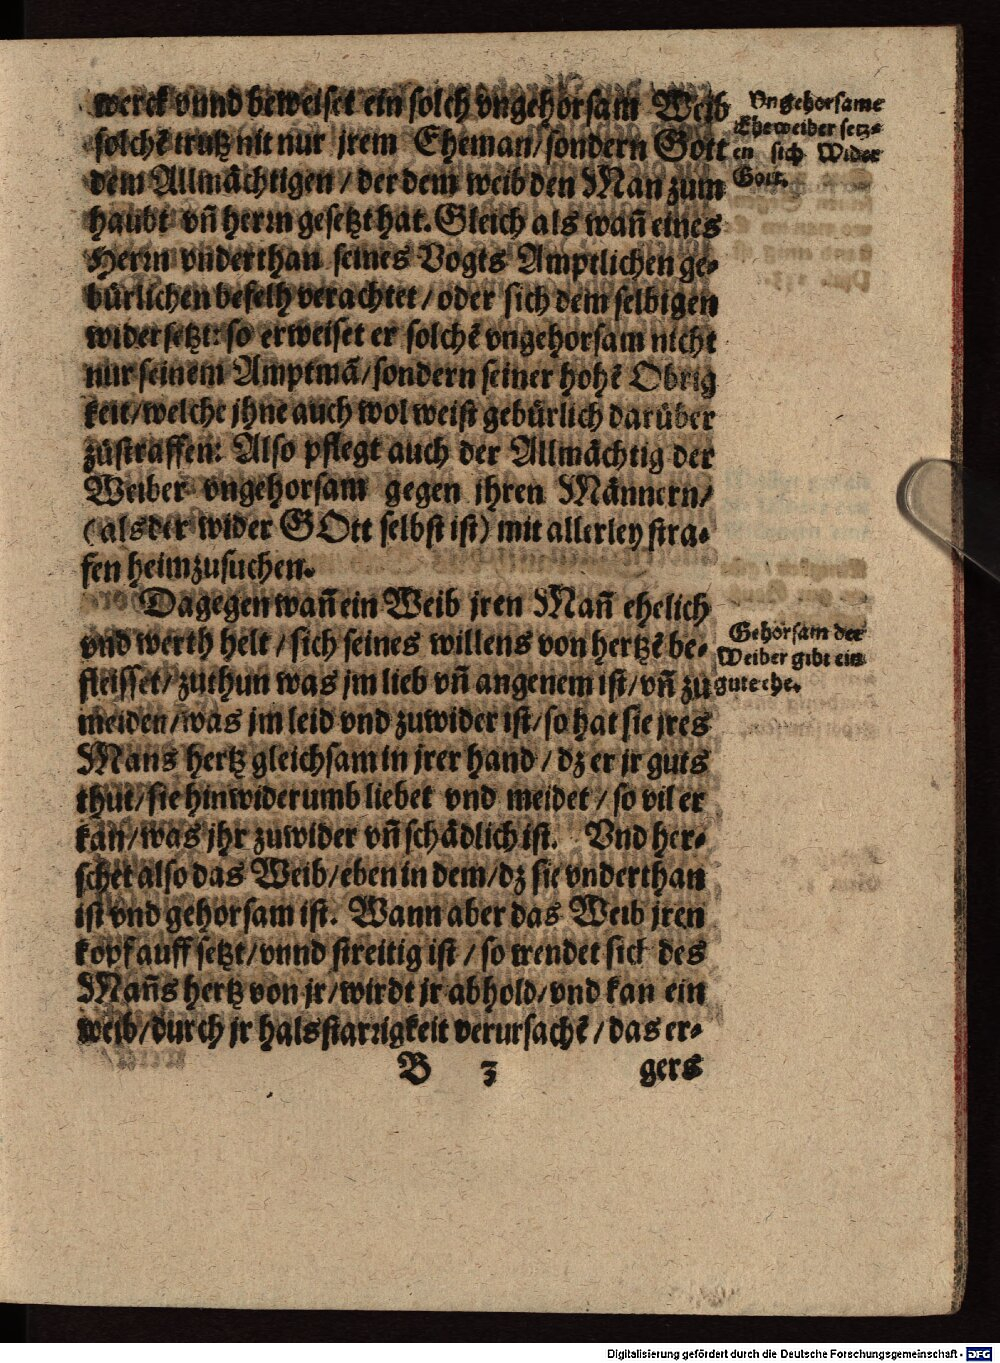 werck vnnd beweiset ein solch vngehorsam Weib
solchẽ trutz nit nur jrem Eheman/ sondern Gott
dem Allmächtigen / der dem weib den Man zum
haubt vñ herrn gesetzt hat. Gleich als wañ eines
Herrn vnderthan seines Vogts Amptlichen ge-
bürlichen befelh verachtet / oder sich dem selbigen
widersetzt: so erweiset er solchẽ vngehorsam nicht
nur seinem Amptmã/ sondern seiner hohẽ Obrig
keit/ welche jhne auch wol weist gebürlich darüber
zůstraffen: Also pflegt auch der Allmächtig der
Weiber vngehorsam gegen ihren Männern/
(als der wider GOtt selbst ist) mit allerley stra-
fen heimzusuchen.
Vngehorsame
Eheweiber setz-
en sich Wider
Gott.
Dagegen wañ ein Weib jren Mañ ehelich
vnd werth helt / sich seines willens von hertzẽ be-
fleisset/ zuthun was jm lieb vñ angenem ist/ vñ zu
meiden/ was jm leid vnd zuwider ist/ so hat sie jres
Mans hertz gleichsam in jrer hand / dz er jr guts
thut/ sie hinwiderumb liebet vnd meidet / so vil er
kan/ was jhr zuwider vñ schädlich ist. Vnd her-
schet also das Weib/ eben in dem/ dz sie vnderthan
ist vnd gehorsam ist. Wann aber das Weib jren
kopf auff setzt/ vnnd streitig ist / so wendet sich des
Mañs hertz von jr/ wirdt jr abhold/ vnd kan ein
weib/ durch jr halsstarrigkeit verursachẽ / das er-
Gehorsam der
Weiber gibt ein
gute ehe.
B 3 gers
Digitalisierung gefördert durch die Deutsche Forschungsgemeinschaft - DFG